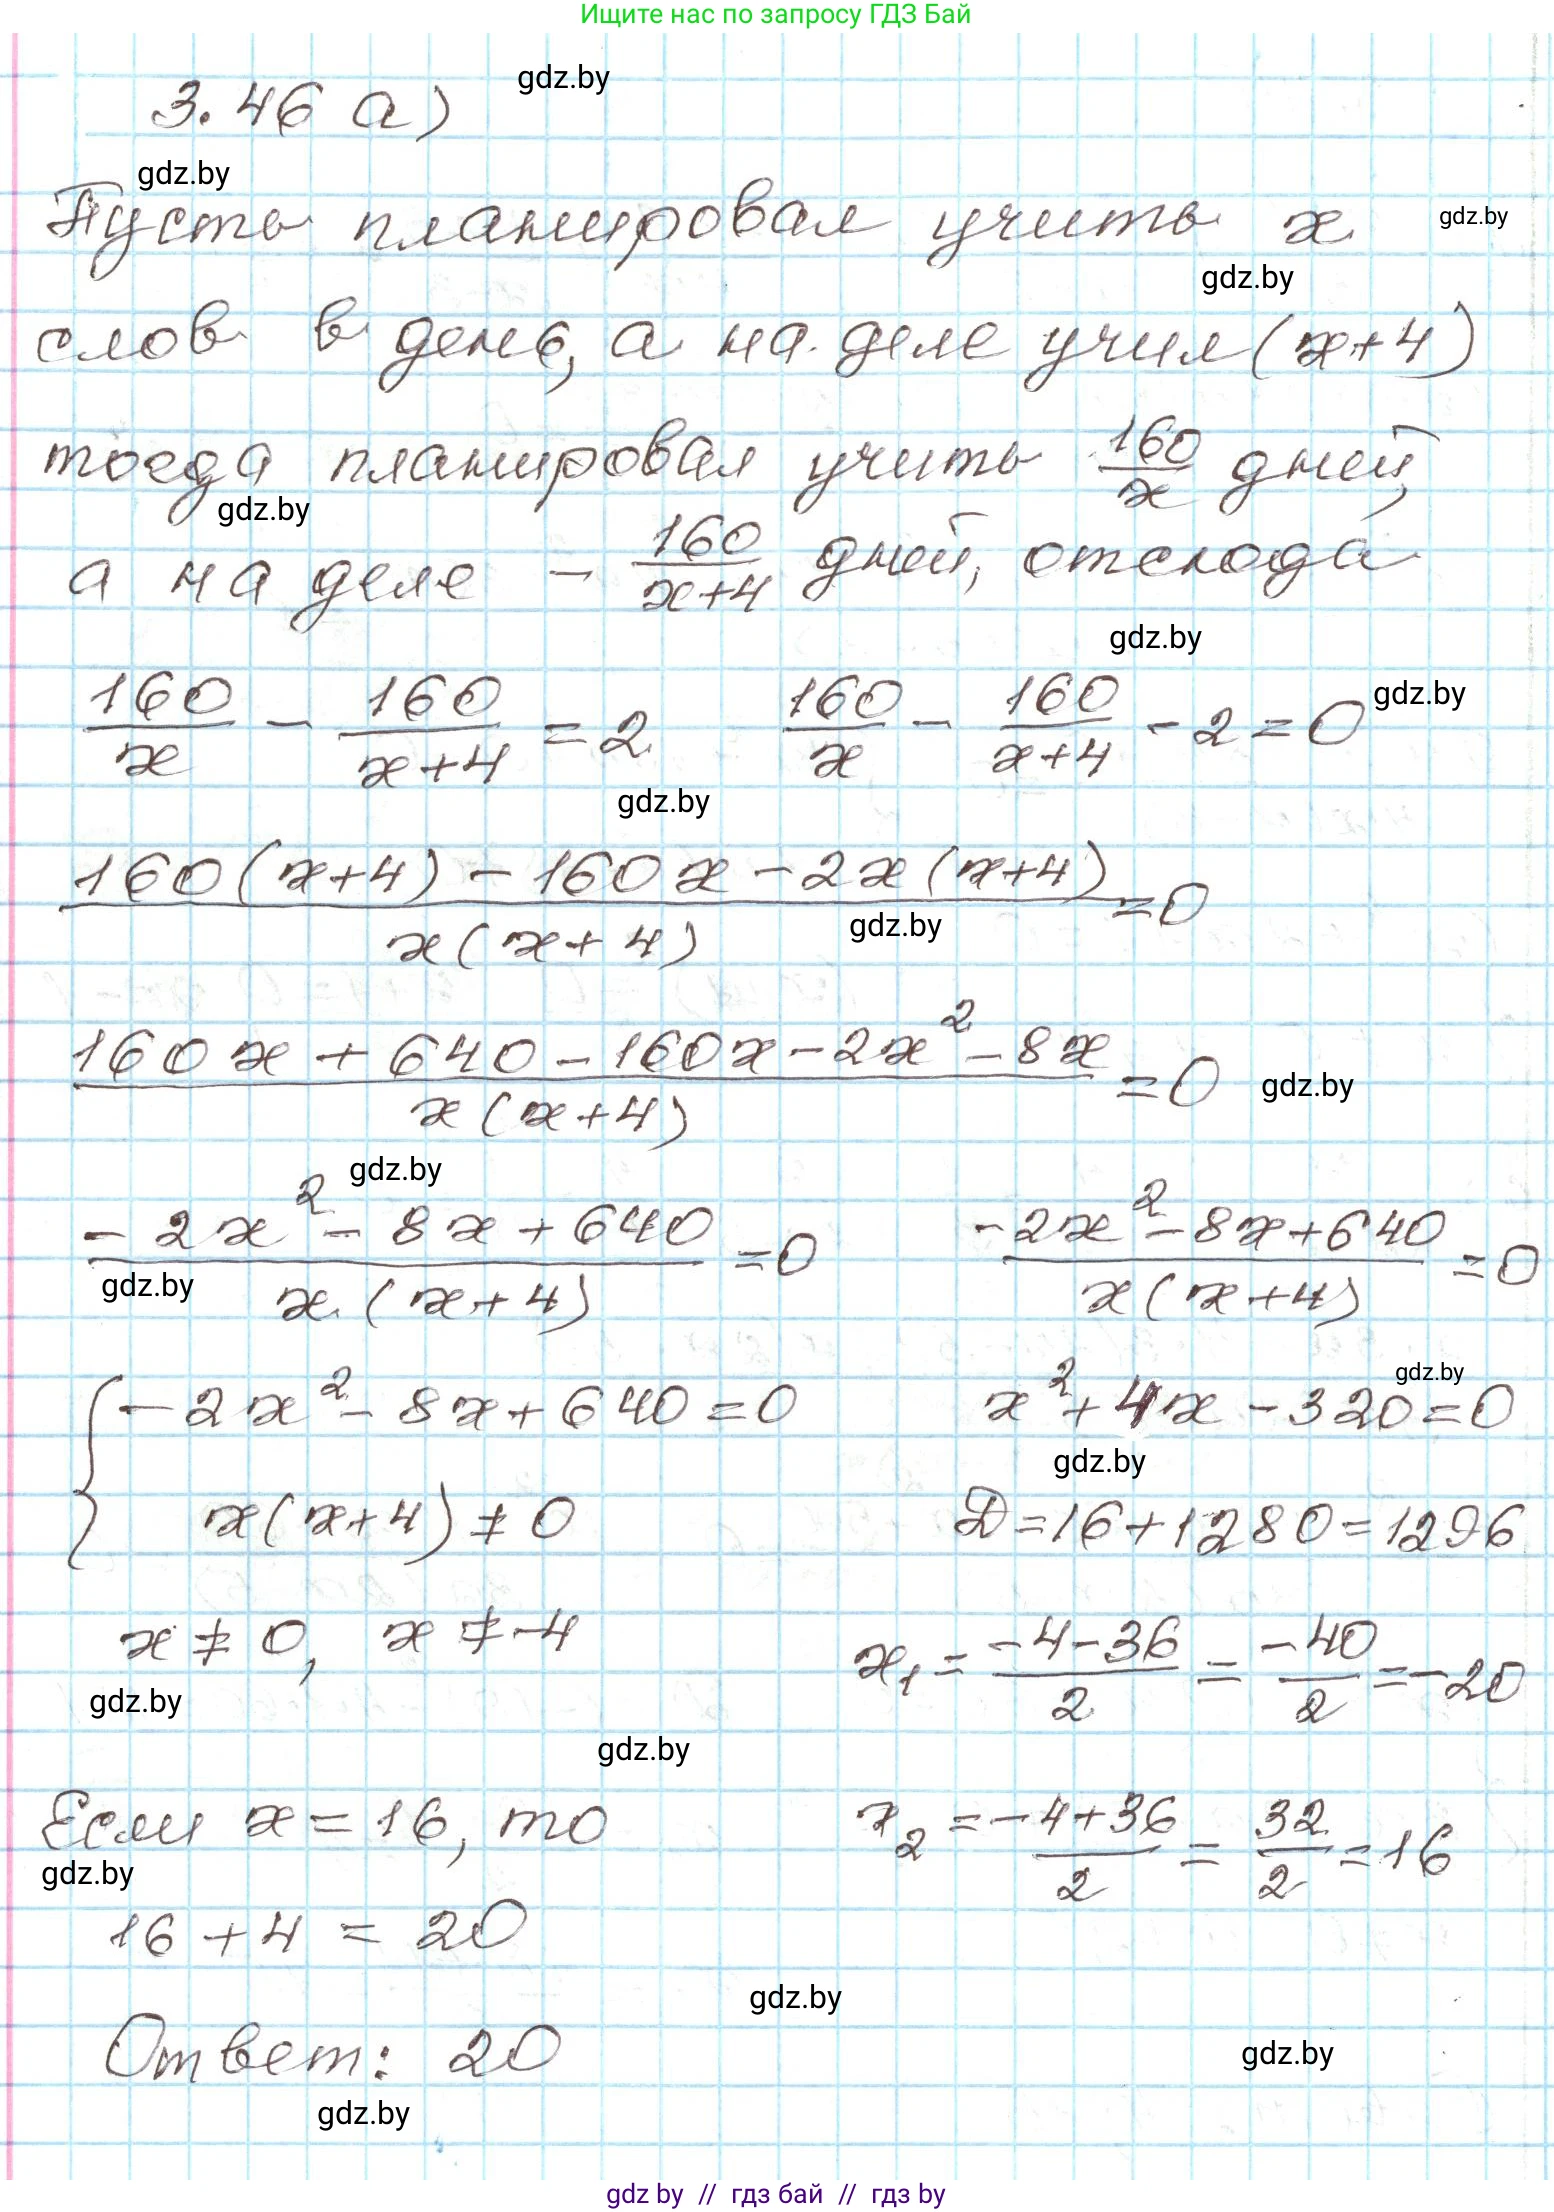 Ищите нас по запросу ГДЗ Бай
gdz.by
3.46 а)
gdz.by
Пусть планировал учить x
gdz.by
gdz.by
слов в день, а на деле учил (x+4)
тогда планировал учить 160/x дней,
gdz.by
а на деле – 160/(x+4) дней, отсюда
gdz.by
160/x − 160/(x+4) = 2    160/x − 160/(x+4) − 2 = 0
gdz.by
gdz.by
(160(x+4) − 160x − 2x(x+4))/(x(x+4)) = 0
gdz.by
(160x + 640 − 160x − 2x² − 8x)/(x(x+4)) = 0
gdz.by
gdz.by
(−2x² − 8x + 640)/(x(x+4)) = 0    (−2x² − 8x + 640)/(x(x+4)) = 0
gdz.by
{ −2x² − 8x + 640 = 0    x² + 4x − 320 = 0
gdz.by
gdz.by
x(x+4) ≠ 0    D = 16 + 1280 = 1296
x ≠ 0, x ≠ −4    x₁ = (−4−36)/2 = −40/2 = −20
gdz.by
gdz.by
Если x = 16, то    x₂ = (−4+36)/2 = 32/2 = 16
gdz.by
16 + 4 = 20
gdz.by
Ответ: 20
gdz.by
gdz.by
gdz by // гдз бай // гдз by